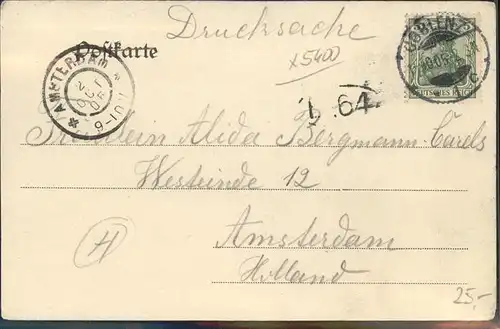 Drucksache
x5400
Postkarte
COBLENZ
DEUTSCHES REICH
AMSTERDAM
L. 64
Fräulein Alida Bergmann-Carels
Westeinde 12
Amsterdam
Holland
H
25,-